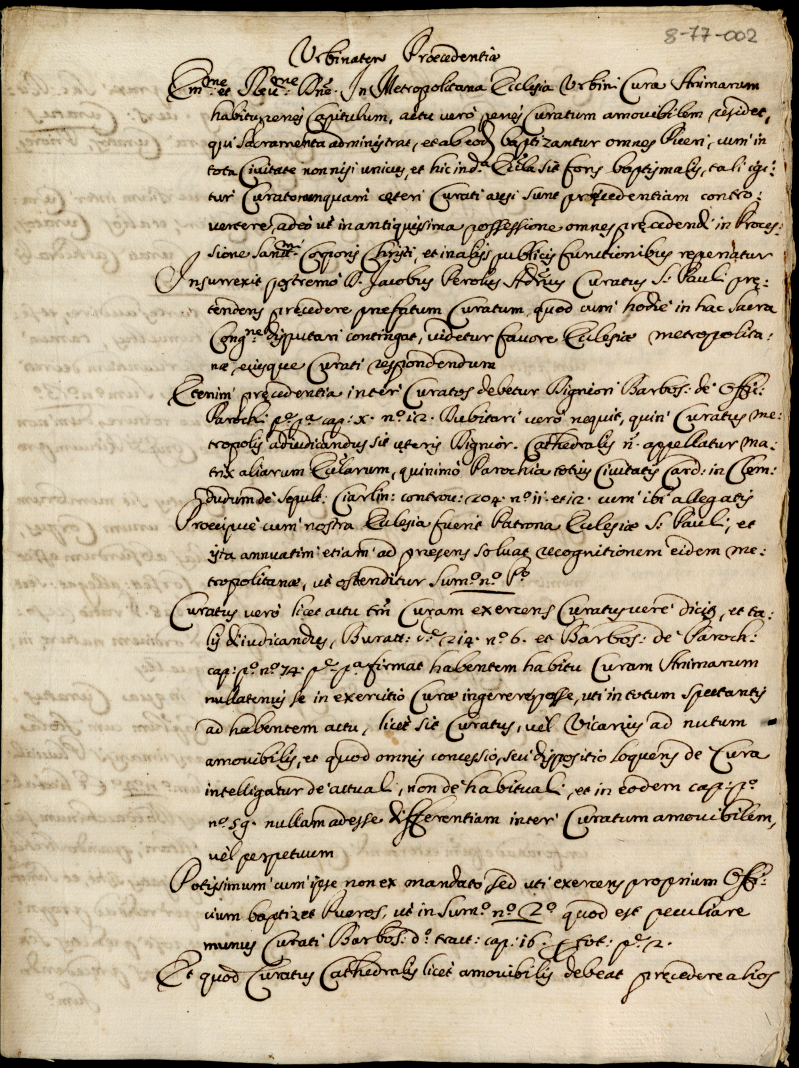 8-77-002
Urbinaten Præcedentiæ
Em.me et Reu.me Dne. In Metropolitana Ecclesia Urbini Cura Animarum
habitu penes Capitulum, actu verò penes Curatum amovibilem residet,
qui Sacramenta administrat, et ab eod baptizantur omnes Pueri, cum in
tota Civitate non nisi unicus, et hic in d.a Eccl̃ia sit fons baptismalis, tali igi:
tur Curato nunquam ceteri Curati ausi sunt præcedentiam contro:
vertere, adeò ut in antiquissima possessione omnes præcedendi in Proces:
sione Sanct.mi Corporis Christi, et in alijs publicis functionibus reperiatur
Insurrexit postremò D. Jacobus Perolius Curatus S. Pauli prę:
tendens præcedere præfatum Curatum, quod cum hodie in hac Sacra
Cong.ne disputari contingat, videtur favore Eclesiæ metropolita:
næ, eiusque Curati respondendum
Etenim præcedentia inter Curatos debetur Digniori Barbos: de Offi:
Paroch: p.e p.a cap: X. n.o 12. Dubitari verò nequit, quin Curatus me:
tropolis adiudicandus sit ceteris Dignior. Cathedralis n. appellatur ma:
trix aliarum Ecl̃arum, quinimò Parochia totius Civitatis Card: in Clem:
Dudum de sepult: Ciarlin: controu: 204. n.o 11. et 12. cum ibi allegatis
Præcipuè cum nostra Eclesia fuerit Patrona Eclesiæ S. Pauli, et
ista annuatim etiam ad præsens soluat recognitionem eidem me:
tropolitanæ, ut ostenditur Sum.o n.o P.o
Curatus verò licet actu tm̃ Curam exercens Curatus verè dicit, et ta:
lis diiudicandus, Buratt: d: 214. n.o 6. et Barbos: de Paroch:
cap: p.o n.o 74. p.e p.a firmat habentem habitu Curam Animarum
nullatenus se in exercitio Curæ ingerere posse, uti in totum spectantis
ad habentem actu, licet sit Curatus, vel Vicarius ad nutum
amovibilis, et quod omnis concessio, seu dispositio loquens de Cura
intelligatur de actuali, non de habituali, et in eodem cap: p.o
n.o 59. nullam adesse differentiam inter Curatum amovibilem,
vel perpetuum
Potissimum cum ipse non ex mandato, sed uti exercens proprium Offi:
cium baptizet Pueros, ut in Sum.o n.o 2.o quod est peculiare
munus Curati Barbos: d.o tract: cap: 16. p.e 2.
Et quod Curatus Cathedralis licet amovibilis debeat præcedere alios